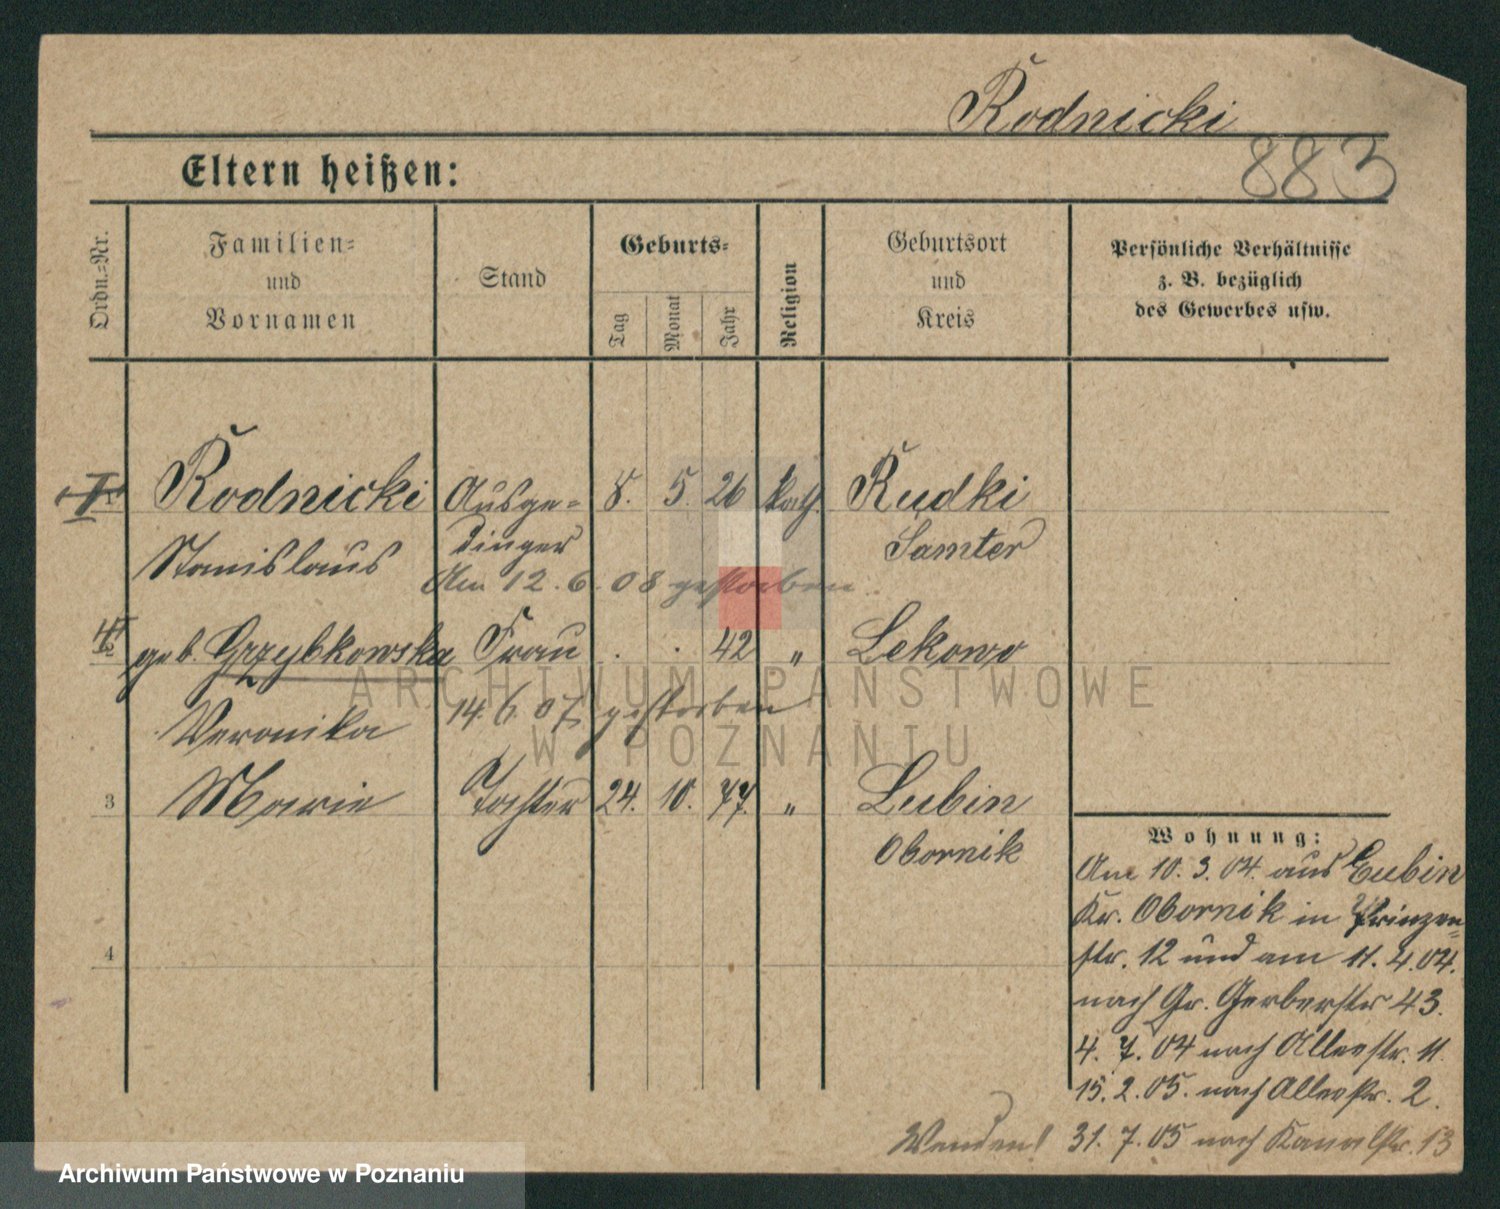 Rodnicki
883
Eltern heißen:
Ordn.=Nr.
Familien=
und
Vornamen
Stand
Geburts=
Tag
Monat
Jahr
Religion
Geburtsort
und
Kreis
Persönliche Verhältnisse
z. B. bezüglich
des Gewerbes usw.
Rodnicki Ausge= 8. 5. 26 kath. Rudki
Stanislaus dinger Samter
Am 12. 6. 08 gestorben
geb. Grzybkowska Frau . . 42 " Lekowo
Veronika 14. 6. 07 gestorben
3 Marie Tochter 24. 10. 77. " Lubin
Obornik
4
Wohnung:
Am 10. 3. 04. aus Lubin
Kr. Obornik in Prinzen=
str. 12 und am 11. 4. 04.
nach Gr. Gerberstr 43.
4. 7. 04 nach Alleestr. 11.
15. 2. 05. nach Alleestr. 2.
Wenden! 31. 7. 05 nach Kanalstr. 13
ARCHIWUM PAŃSTWOWE
W POZNANIU
Archiwum Państwowe w Poznaniu